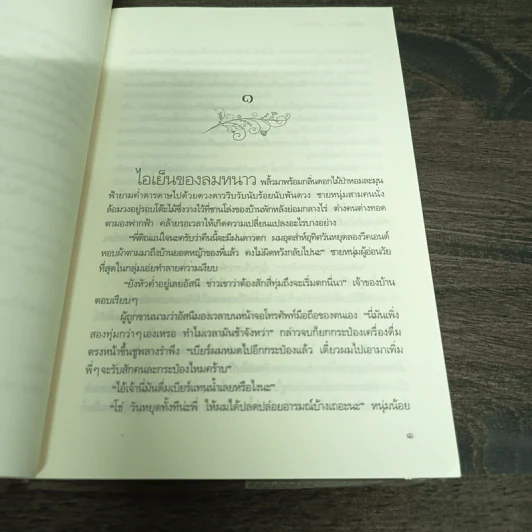 ๑
ไอเย็นของลมหนาว พลิ้วมาพร้อมกลิ่นดอกไม้ป่าหอมละมุน
ฟ้ายามค่ำดารดาษไปด้วยดวงดาวริบรับนับร้อยนับพันดวง ชายหนุ่มสามคนนั่ง
ล้อมวงอยู่รอบโต๊ะไม้ซึ่งวางไว้ที่ชานโล่งของบ้านพักหลังย่อมกลางไร่ ต่างคนต่างทอด
ตามองฟากฟ้า คล้ายรอเวลาให้เกิดความเปลี่ยนแปลงอะไรบางอย่าง
“พี่ติณแน่ใจนะครับว่าคืนนี้จะมีฝนดาวตก ผมอุตส่าห์อุทิศวันหยุดลองวีคเอนด์
หอบผ้าตามมาถึงบ้านยอดหญ้าของพี่แล้ว คงไม่ผิดหวังกลับไปนะ” ชายหนุ่มผู้อ่อนวัย
ที่สุดในกลุ่มเอ่ยทำลายความเงียบ
“ยังหัวค่ำอยู่เลยอัสนี ข่าวเขาว่าต้องสักสี่ทุ่มถึงจะเริ่มตกนี่นา” เจ้าของบ้าน
ตอบเรียบๆ
ผู้ถูกขานนามว่าอัสนีมองเวลาบนหน้าจอโทรศัพท์มือถือของตนเอง “นี่มันเพิ่ง
สองทุ่มกว่าๆ เองเหรอ ทำไมเวลามันช้าจังหว่า” กล่าวจบก็ยกกระป๋องเครื่องดื่ม
ตรงหน้าขึ้นชูพลางรำพึง “เบียร์ผมหมดไปอีกกระป๋องแล้ว เดี๋ยวผมไปเอามาเพิ่ม
พี่ๆ จะรับสักคนละกระป๋องไหมคร้าบ”
“ไอ้เจ้านี่มันดื่มเบียร์แทนน้ำเลยหรือไงนะ”
“โธ่ วันหยุดทั้งทีน่ะพี่ ให้ผมได้ปลดปล่อยอารมณ์บ้างเถอะนะ” หนุ่มน้อย